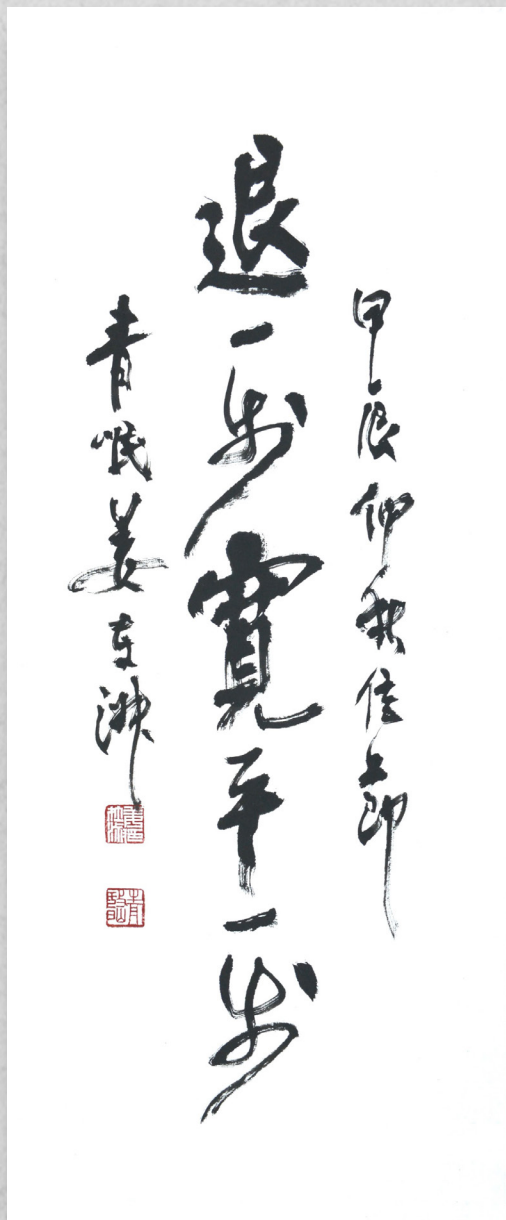 甲辰仲秋佳節
退一步寬平一步
青岷姜